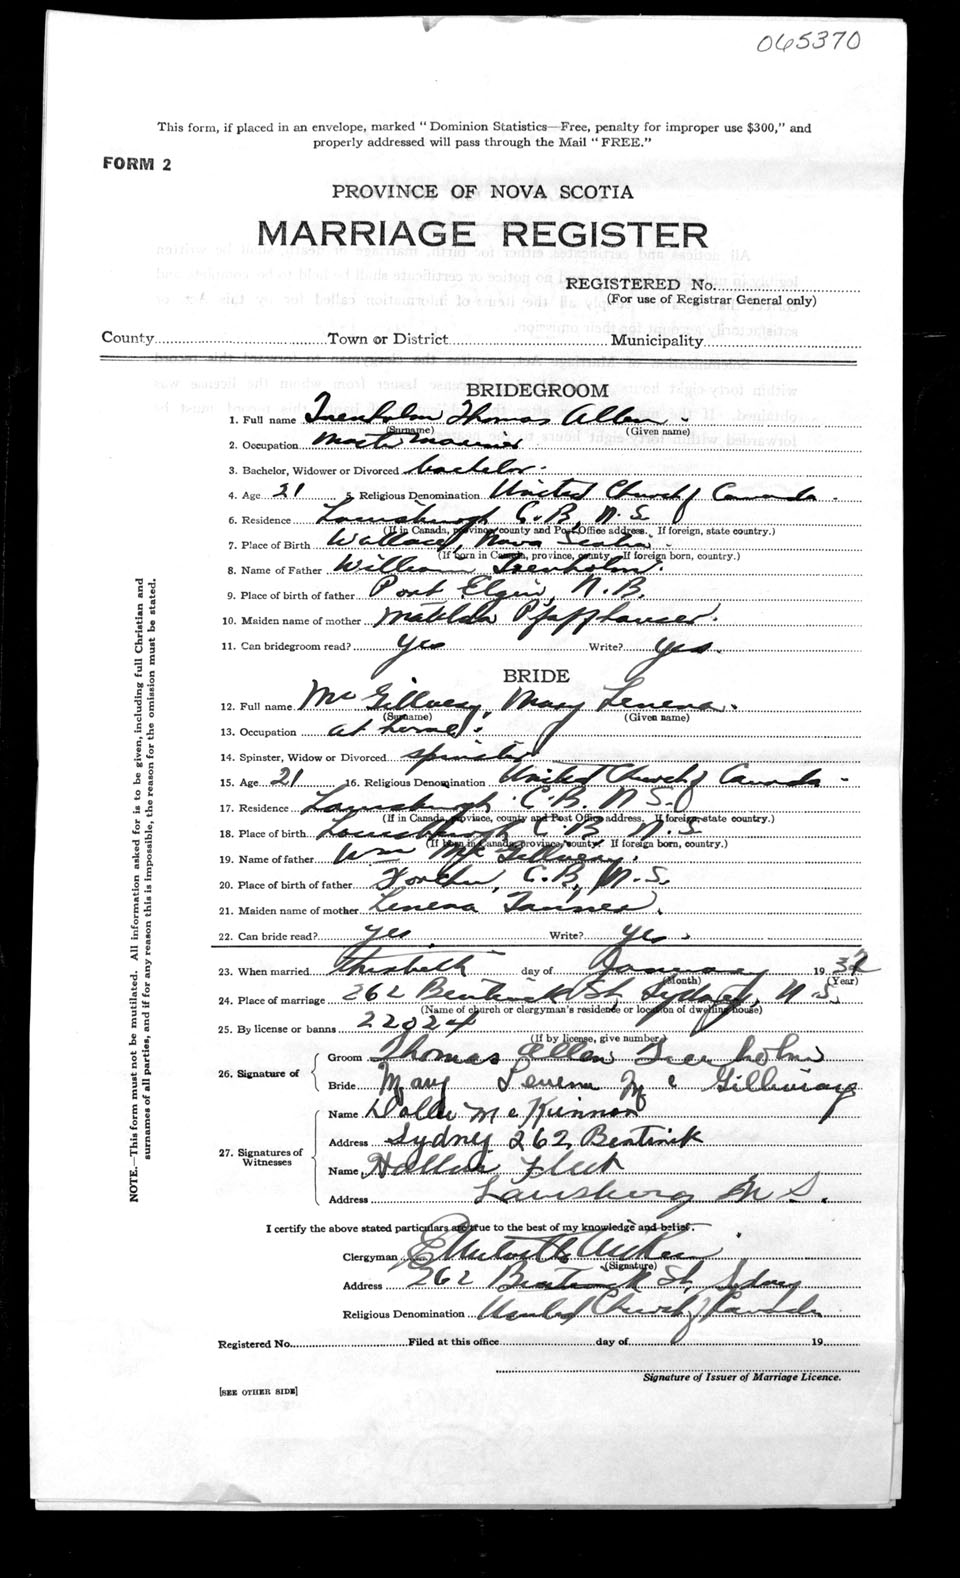 065370
This form, if placed in an envelope, marked "Dominion Statistics—Free, penalty for improper use $300," and
properly addressed will pass through the Mail "FREE."
FORM 2
PROVINCE OF NOVA SCOTIA
MARRIAGE REGISTER
REGISTERED No.
(For use of Registrar General only)
County Town or District Municipality
BRIDEGROOM
1. Full name Trenholm Thomas Allen
(Surname) (Given name)
2. Occupation Master Mariner
3. Bachelor, Widower or Divorced bachelor.
4. Age 21 5. Religious Denomination United Church of Canada.
6. Residence Louisburgh C.B, N.S.
(If in Canada, province, county and Post Office address. If foreign, state country.)
7. Place of Birth Wallace, Nova Scotia.
(If born in Canada, province, county. If foreign born, country.)
8. Name of Father William Trenholm.
9. Place of birth of father Port Elgin, N.B.
10. Maiden name of mother Matilda
11. Can bridegroom read? yes Write? yes.
BRIDE
12. Full name McGillvray, Mary Lenena.
(Surname) (Given name)
13. Occupation at home.
14. Spinster, Widow or Divorced spinster
15. Age 21 16. Religious Denomination United Church of Canada -
17. Residence Louisburgh C.B. N.S.
(If in Canada, province, county and Post Office address. If foreign, state country.)
18. Place of birth Louisburgh C.B. N.S
(If born in Canada, province, county. If foreign born, country.)
19. Name of father Wm McGillvray.
20. Place of birth of father Forchu, C.B, N.S.
21. Maiden name of mother Lenena
22. Can bride read? yes Write? yes.
23. When married day of January 1932
(Month) (Year)
24. Place of marriage 262 Bentinck St, Sydney, N.S.
(Name of church or clergyman's residence or location of dwelling house)
25. By license or banns 22024
(If by license, give number)
26. Signature of
Groom Thomas Allen Trenholm
Bride Mary Lenena McGillivray
27. Signatures of Witnesses
Name McKinnon
Address Sydney 262 Bentinck
Name
Address Louisburg N S.
I certify the above stated particulars are true to the best of my knowledge and belief.
Clergyman
(Signature)
Address 262 Bentinck St, Sydney
Religious Denomination United Church of Canada
Registered No. Filed at this office day of 19
Signature of Issuer of Marriage Licence.
[SEE OTHER SIDE]
NOTE.—This form must not be mutilated. All information asked for is to be given, including full Christian and
surnames of all parties, and if for any reason this is impossible, the reason for the omission must be stated.